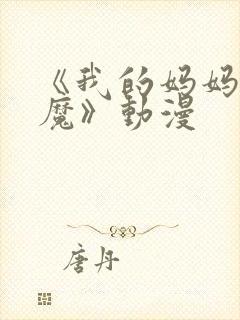 《我的妈妈
魔》動漫
唐丹